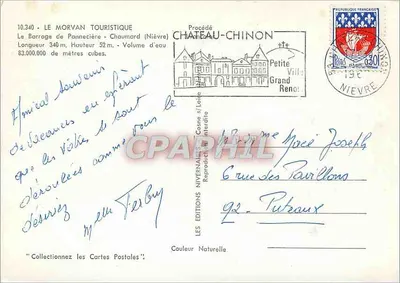 10.340 - LE MORVAN TOURISTIQUE
Le Barrage de Pannecière - Chaumard (Nièvre)
Longueur 340 m, Hauteur 52 m. - Volume d'eau
82.000.000 de mètres cubes.
Procédé
CHATEAU-CHINON
Petite Ville
Grand Renom
REPUBLIQUE FRANÇAISE
0,30
CHINON
NIEVRE
Amical souvenir
de vacances en espérant
que les vôtres se sont
déroulées comme vous le
désiriez
Mlle
LES EDITIONS NIVERNAISES - Cosne s/Loire
Reproduction interdite
CPARPHIL
Mr et Mme Macé Joseph
6 rue des Pavillons
92 - Puteaux
Couleur Naturelle
"Collectionnez les Cartes Postales"